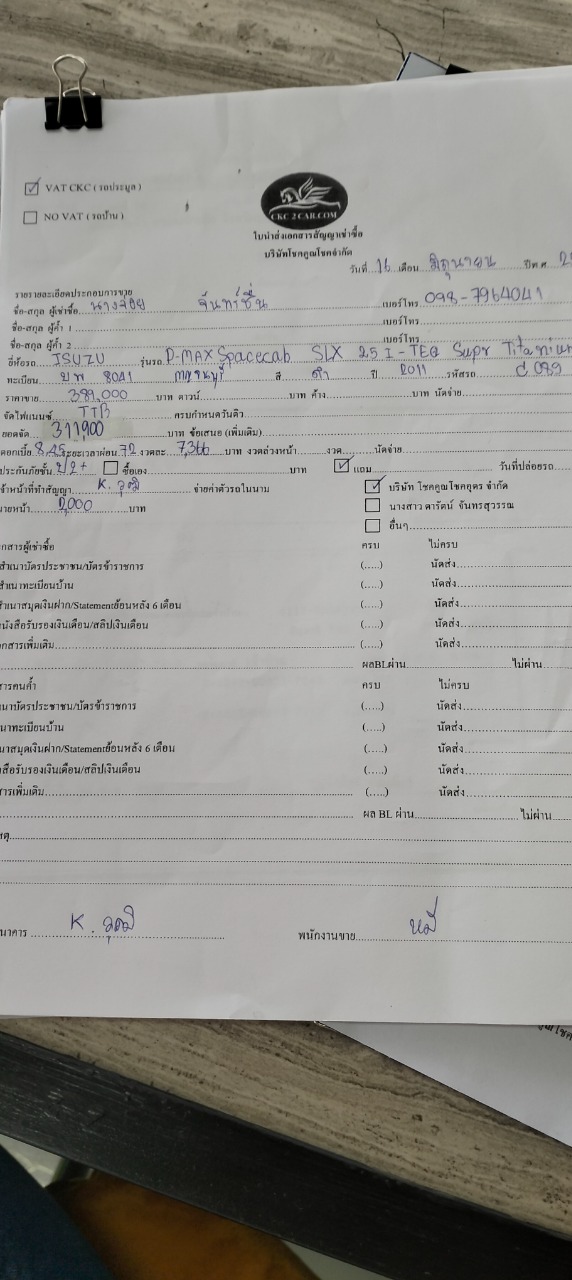 ☑ VAT CKC ( รถประมูล )
☐ NO VAT ( รถบ้าน )
CKC 2 CAR.COM
ใบนำส่งเอกสารสัญญาเช่าซื้อ
บริษัทโชคคูณโชคจำกัด
วันที่ 16 เดือน มิถุนายน ปีพ.ศ. 2
รายรายละเอียดประกอบการขาย
ชื่อ-สกุล ผู้เช่าซื้อ นางจ้อย จันทร์ชื่น เบอร์โทร 098-7964041
ชื่อ-สกุล ผู้ค้ำ 1 เบอร์โทร
ชื่อ-สกุล ผู้ค้ำ 2 เบอร์โทร
ยี่ห้อรถ ISUZU รุ่นรถ D-MAX Spacecab SLX 2.5 I-TEQ Supr Titanium
ทะเบียน 8041 กาญจนบุรี สี ดำ ปี 2011 รหัสรถ C 089
ราคาขาย 389,000 บาท ดาวน์ บาท ค้าง บาท นัดจ่าย
จัดไฟแนนซ์ TTB ครบกำหนดวันดิว
ยอดจัด 311,900 บาท ข้อเสนอ (เพิ่มเติม)
ดอกเบี้ย 8.45 ระยะเวลาผ่อน 72 งวดละ 7,366 บาท งวดล่วงหน้า งวด นัดจ่าย
ประกันภัยชั้น 2+ ☐ ซื้อเอง บาท ☑ แถม วันที่ปล่อยรถ
จ้าหน้าที่ทำสัญญา K. วุฒิ จ่ายค่าตัวรถในนาม ☑ บริษัท โชคคูณโชคอุดร จำกัด
ายหน้า ,000 บาท ☐ นางสาว ดารัตน์ จันทรสุวรรณ
☐ อื่นๆ
กสารผู้เช่าซื้อ ครบ ไม่ครบ
สำเนาบัตรประชาชน/บัตรข้าราชการ (.....) นัดส่ง
สำเนาทะเบียนบ้าน (.....) นัดส่ง
สำเนาสมุดเงินฝาก/Statementย้อนหลัง 6 เดือน (.....) นัดส่ง
นังสือรับรองเงินเดือน/สลิปเงินเดือน (.....) นัดส่ง
กสารเพิ่มเติม (.....) นัดส่ง
ผลBLผ่าน ไม่ผ่าน
สารคนค้ำ ครบ ไม่ครบ
นาบัตรประชาชน/บัตรข้าราชการ (.....) นัดส่ง
นาทะเบียนบ้าน (.....) นัดส่ง
นาสมุดเงินฝาก/Statementย้อนหลัง 6 เดือน (.....) นัดส่ง
สือรับรองเงินเดือน/สลิปเงินเดือน (.....) นัดส่ง
สารเพิ่มเติม (.....) นัดส่ง
ผล BL ผ่าน ไม่ผ่าน
หตุ
นาคาร K. วุฒิ พนักงานขาย หมี